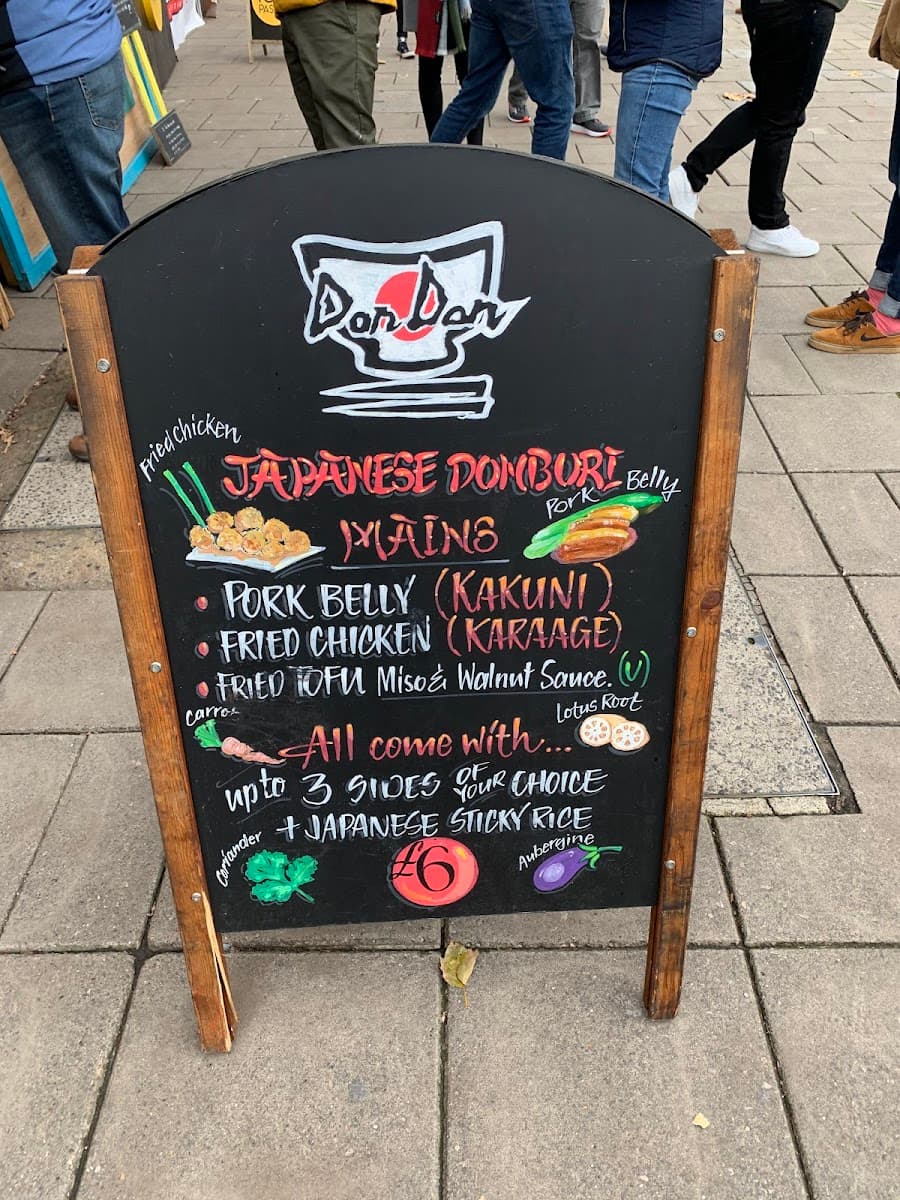 PAS
Don Don
Fried Chicken
JAPANESE DONBURI
Pork Belly
MAINS
• PORK BELLY (KAKUNI)
• FRIED CHICKEN (KARAAGE)
• FRIED TOFU Miso & Walnut Sauce. (V)
Carrot
Lotus Root
All come with...
up to 3 SIDES OF YOUR CHOICE
+ JAPANESE STICKY RICE
Coriander
£6
Aubergine